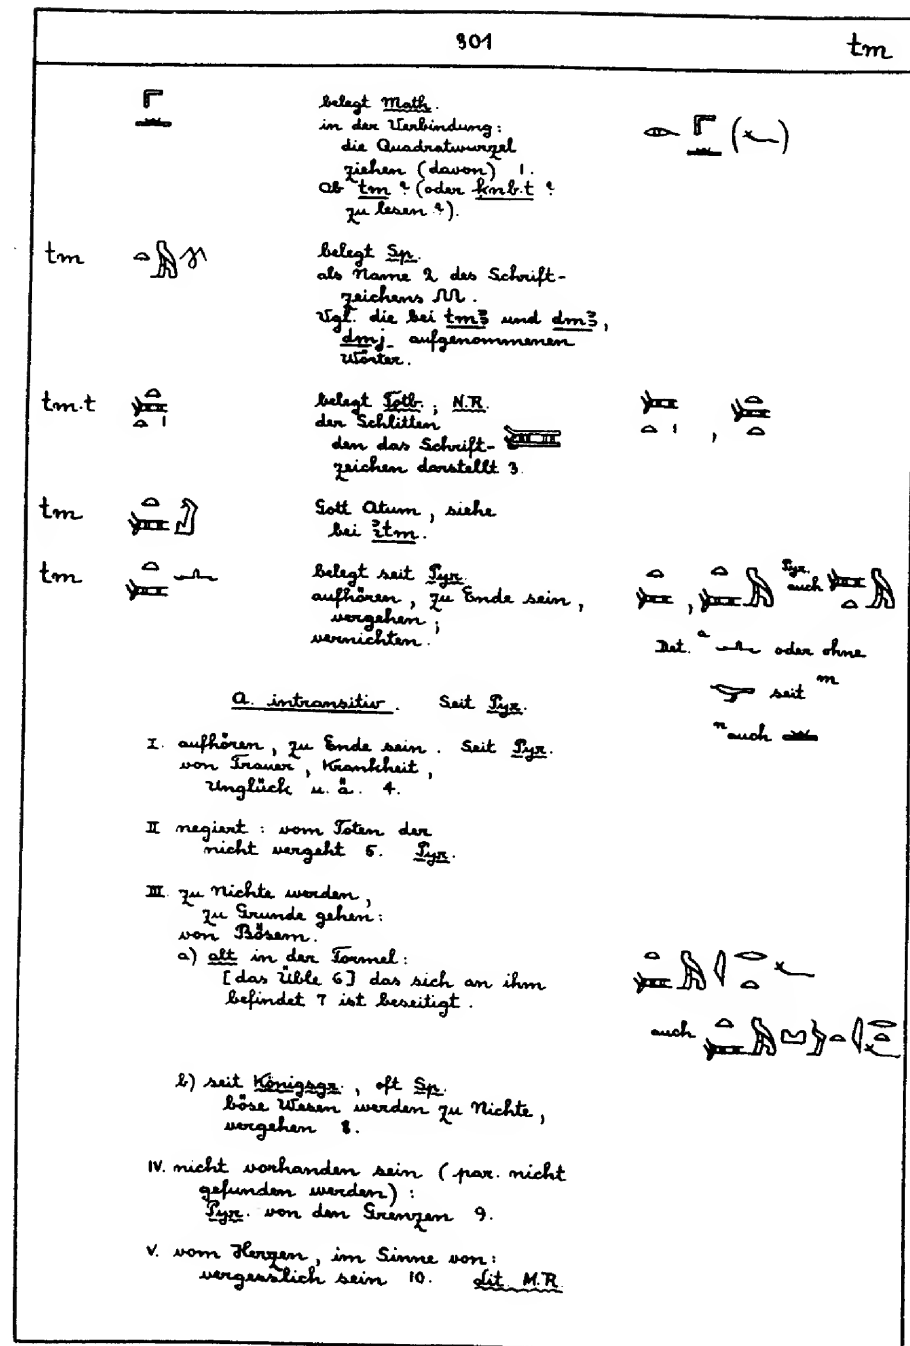 301
tm
belegt Math.
in der Verbindung:
die Quadratwurzel
ziehen (davon) 1.
Ob tm ? (oder ḳnb.t ?
zu lesen ?).
tm
belegt Sp.
als Name 2 des Schrift-
zeichens
Vgl. die bei tmꜣ und dmꜣ,
dmj aufgenommenen
Wörter.
tm.t
belegt Totb.; N.R.
der Schlitten
den das Schrift-
zeichen darstellt 3.
tm
Gott Atum, siehe
bei ꞽtm.
tm
belegt seit Pyr.
aufhören, zu Ende sein,
vergehen;
vernichten.
Pyr.
auch
Det. a oder ohne
seit m
n auch
A. intransitiv. Seit Pyr.
I. aufhören, zu Ende sein. Seit Pyr.
von Trauer, Krankheit,
Unglück u. ä. 4.
II negiert: vom Toten der
nicht vergeht 5. Pyr.
III. zu Nichte werden,
zu Grunde gehen:
von Bösem.
a) alt in der Formel:
[das Üble 6] das sich an ihm
befindet 7 ist beseitigt.
auch
b) seit Königsgr., oft Sp.
böse Wesen werden zu Nichte,
vergehen 8.
IV. nicht vorhanden sein (par. nicht
gefunden werden):
Pyr. von den Grenzen 9.
V. vom Herzen, im Sinne von:
vergesslich sein 10. Lit. M.R.